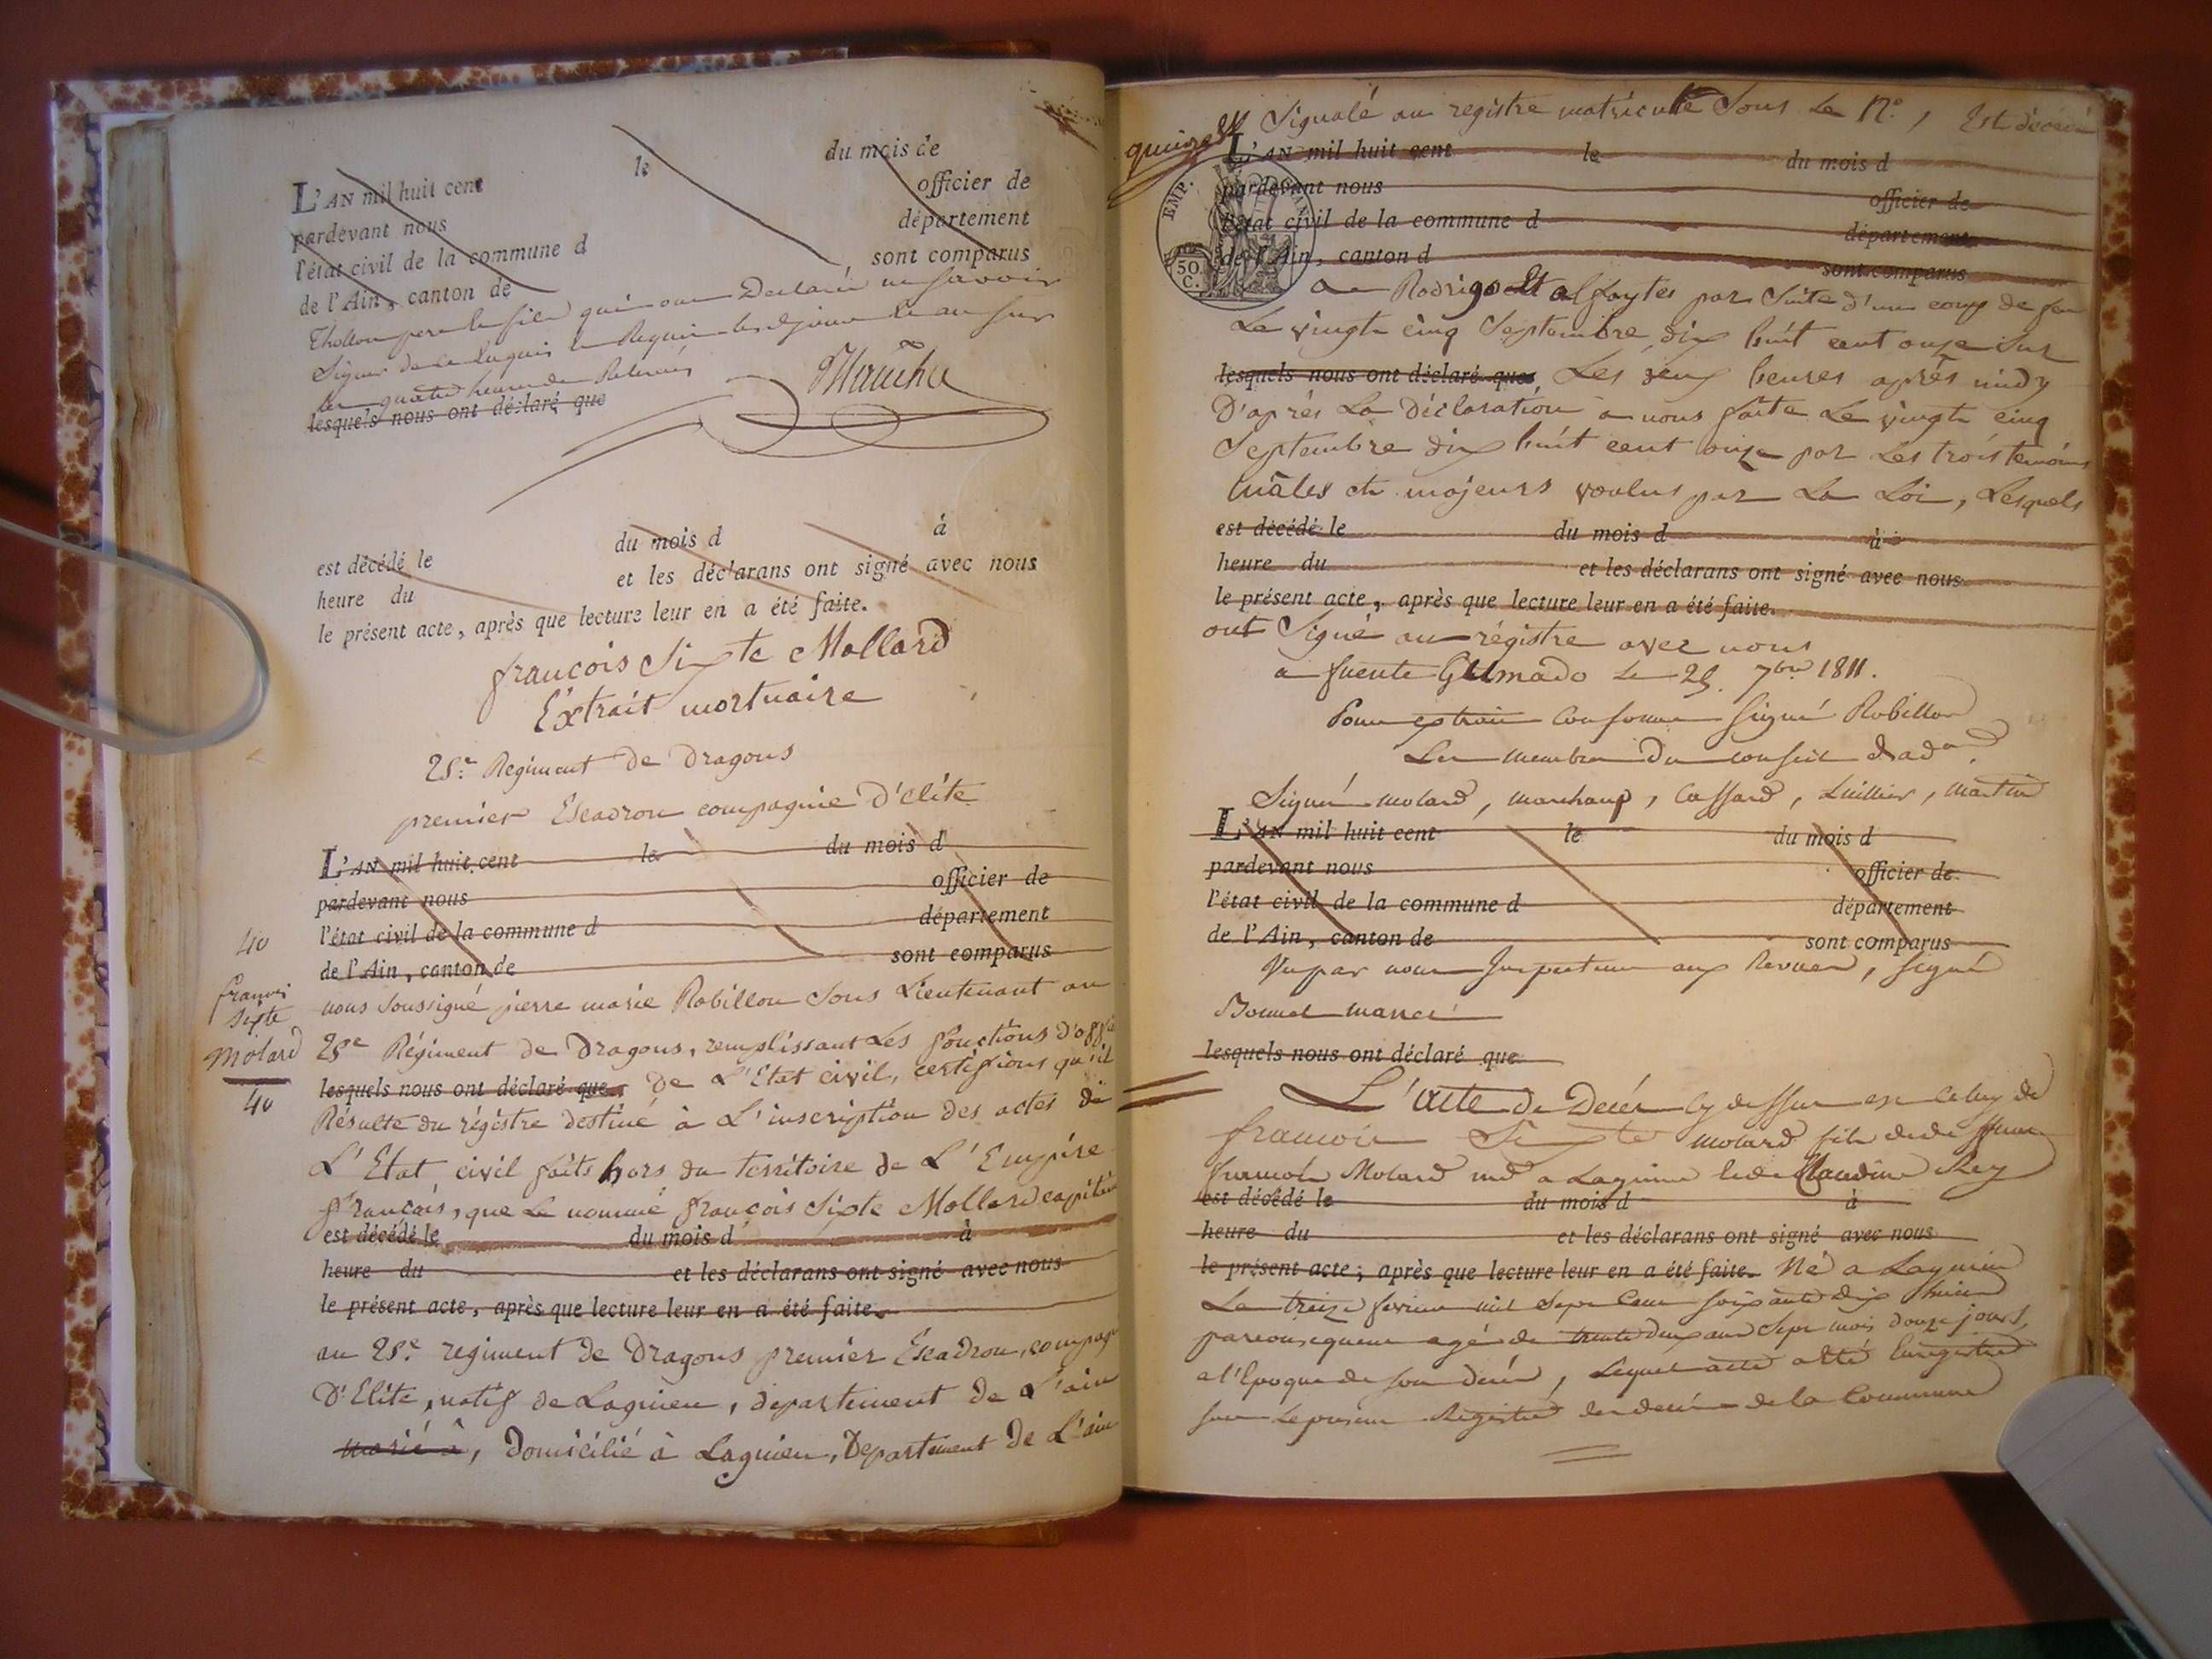 L'AN mil huit cent le du mois de
pardevant nous officier de
l'état civil de la commune d département
de l'Ain, canton de sont comparus
Thollon pere le fils qui ont Declaré ne savoir
Signer de ce Enquis et Requis les jour et an sus
quatre heures de Relevée
lesquels nous ont déclaré que
est décédé le du mois d à
heure du et les déclarans ont signé avec nous
le présent acte, après que lecture leur en a été faite.
françois Sixte Mollard
Extrait mortuaire
25e Regiment de Dragons
premier Escadron compagnie D'élite
L'AN mil huit cent le du mois d
pardevant nous officier de
l'état civil de la commune d département
de l'Ain, canton de sont comparus
40
françois
Sixte
Molard
40
nous soussigné pierre marie Robillon Sous Lieutenant au
25e Régiment de Dragons, remplissant Les fonctions d'offie
lesquels nous ont déclaré que, De L'Etat civil, certifions qu'il
Résulte du régistre destiné à L'inscription des actes de
L'Etat civil faits hors du territoire de L'Empire
français, que Le nommé françois Sixte Mollard capitaine
est décédé le du mois d à
heure du et les déclarans ont signé avec nous
le présent acte, après que lecture leur en a été faite.
au 25e regiment de Dragons premier Escadron, compag
D'Elite, natif de Lagnieu, departement de L'ain
marié à, Domicilié à Lagnieu, Departement de L'ain
Signalé au registre matricule Sous Le No. , Est décédé
L'AN mil huit cent le du mois d
pardevant nous officier de
l'état civil de la commune d département
de l'Ain, canton d sont comparus
EMP.
50
C.
a Rodrigo par Suite d'un coup de feu
Le vingt cinq Septembre dix huit cent onze Sur
lesquels nous ont déclaré que, Les deux heures après midy
D'après La Déclaration a nous faite Le vingt cinq
Septembre dix huit cent onze par Les trois temoins
mâles et majeurs voulus par La Loi, Lesquels
est décédé le du mois d à
heure du et les déclarans ont signé avec nous
le présent acte, après que lecture leur en a été faite.
ont Signé au régistre avec nous
a fuente Le 25 7bre 1811.
Pour extrait Conforme Signé Robillon
Les membres Du conseil d'adon
Signé molard, marchand, Cassard, Luillier, martin
L'AN mil huit cent le du mois d
pardevant nous officier de
l'état civil de la commune d département
de l'Ain, canton de sont comparus
Vu par nous Inspecteur aux Revues, Signé
lesquels nous ont déclaré que
L'acte de Décès cy dessus est celuy de
francois Sixte molard fils de
francois Molard md a Lagnieu et de Claudine Rey
est décédé le du mois d à
heure du et les déclarans ont signé avec nous
le présent acte; après que lecture leur en a été faite. Né a Lagnieu
Le treize fevrier mil Sept Cent soixante dix huit
par consequent agé de trente deux ans Sept mois douze jours,
a l'Epoque de son decès, Lequel acte a été Enregistré
sur Le present Registre des decès de la Commune